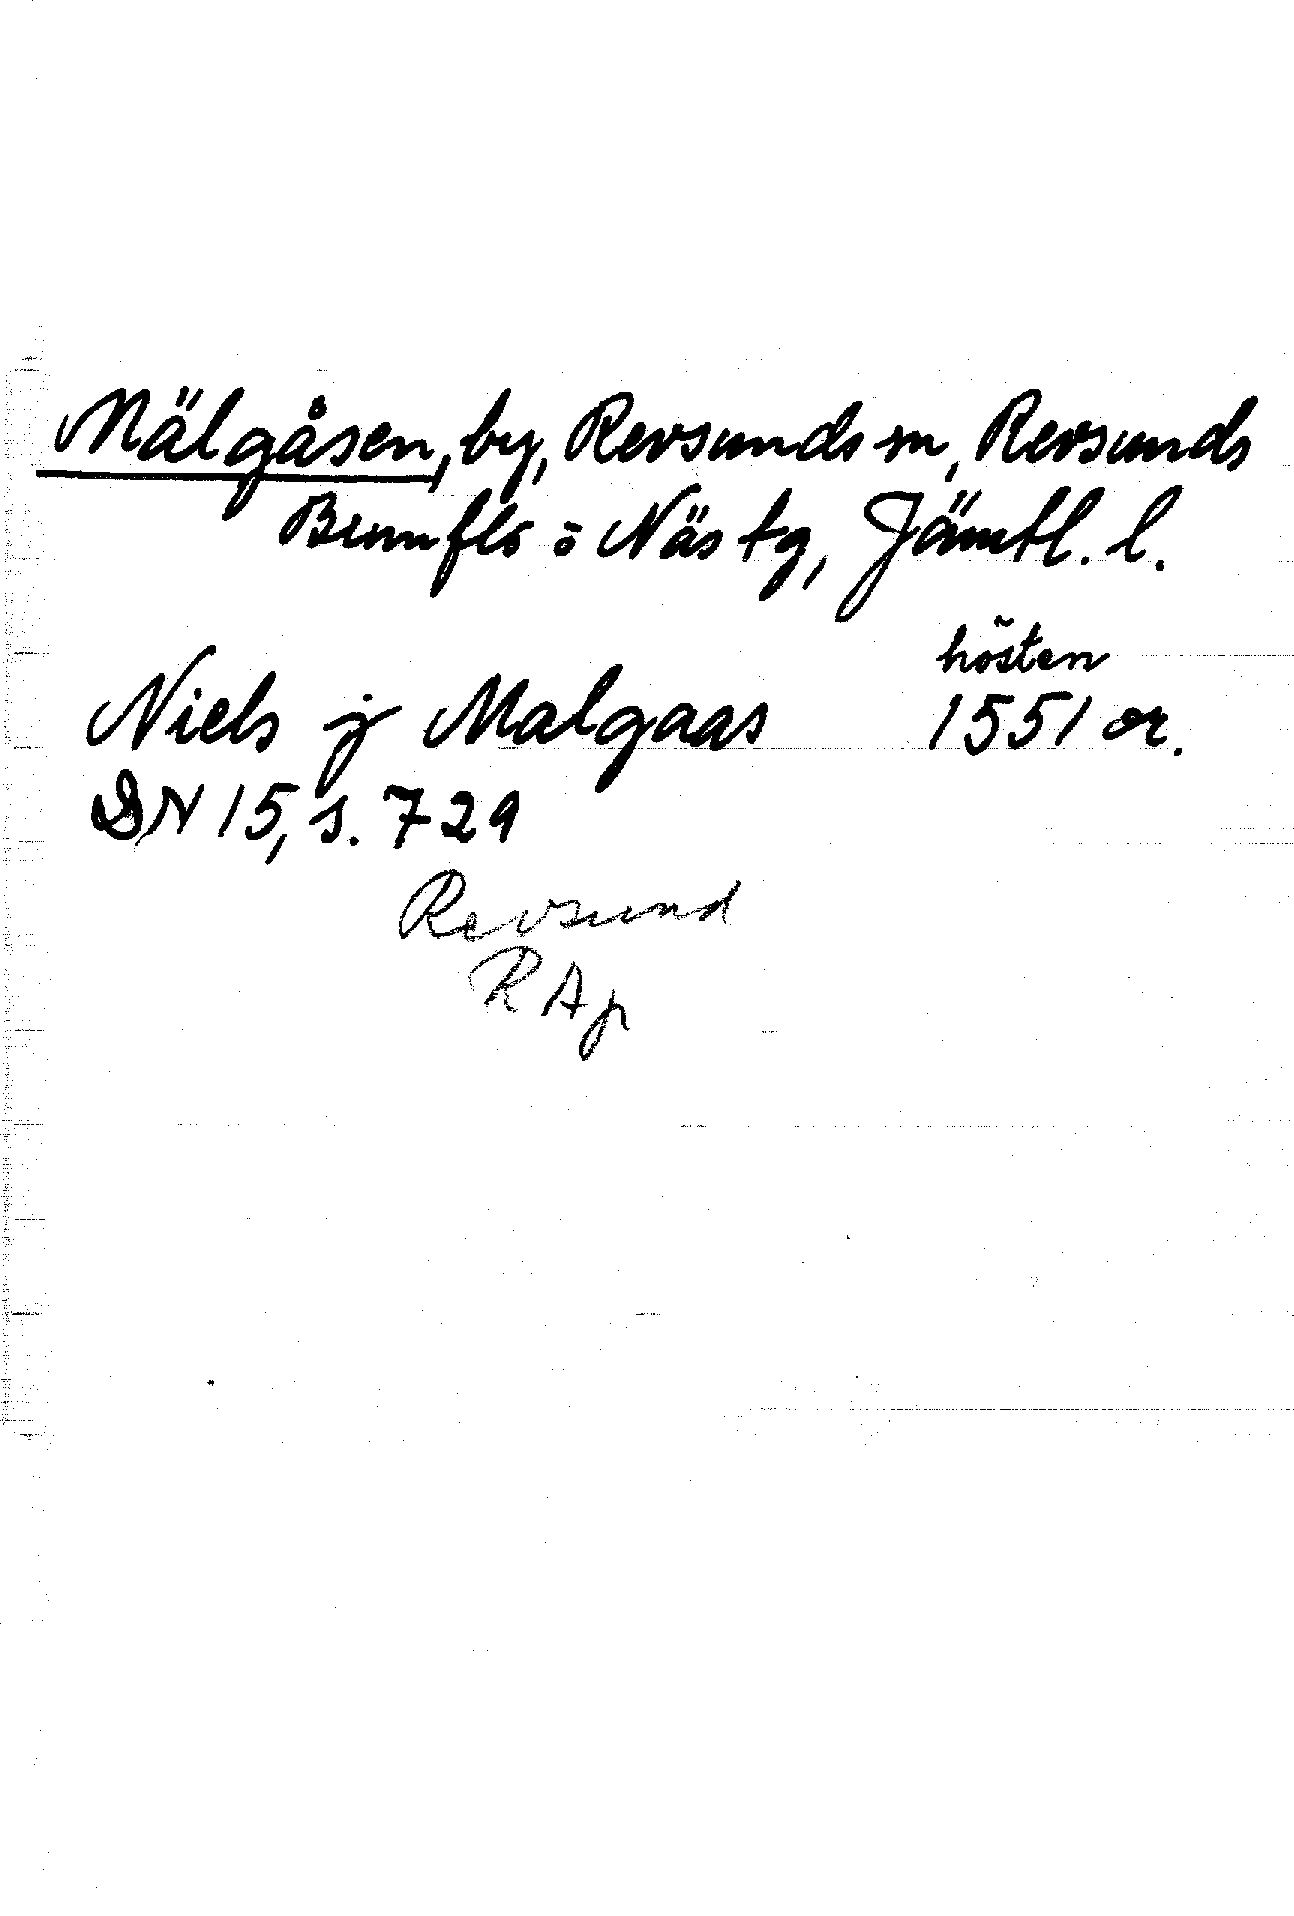 Mälgåsen, by, Revsunds sn, Revsunds
Brunflo o Näs tg, Jämtl. l.
hösten
Niels j Malgaas 1551 or.
DN 15, s. 729
Revsund
RAp